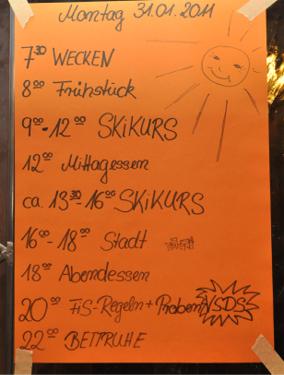 Montag 31.01.2011
7³⁰ WECKEN
8⁰⁰ Frühstück
9⁰⁰-12⁰⁰ SKiKURS
12⁰⁰ Mittagessen
ca. 13³⁰-16⁰⁰ SKiKURS
16⁰⁰-18⁰⁰ Stadt
18⁰⁰ Abendessen
20⁰⁰ FiS-Regeln + Proben VSDS
22⁰⁰ BETTRUHE